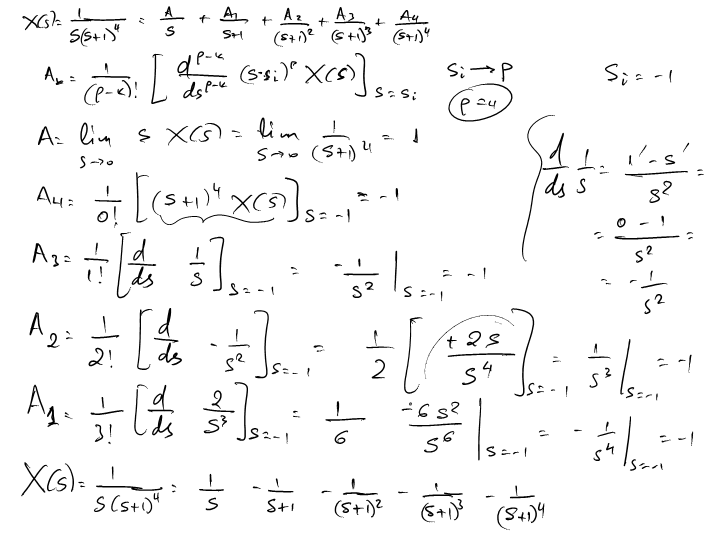 X(s) = 1/(s(s+1)^4) = A/s + A₁/(s+1) + A₂/(s+1)² + A₃/(s+1)³ + A₄/(s+1)⁴
Aₖ = 1/(p-k)! [ d^(p-k)/ds^(p-k) (s-sᵢ)^p X(s) ]_(s=sᵢ) sᵢ → p sᵢ = -1
p=4
A = lim_(s→0) s X(s) = lim_(s→0) 1/(s+1)^4 = 1
A₄ = 1/0! [ (s+1)^4 X(s) ]_(s=-1) = -1
d/ds 1/s = (1' - s')/s² =
= (0 - 1)/s² =
= -1/s²
A₃ = 1/1! [ d/ds 1/s ]_(s=-1) = -1/s² |_(s=-1) = -1
A₂ = 1/2! [ d/ds -1/s² ]_(s=-1) = 1/2 [ +2s/s⁴ ]_(s=-1) = 1/s³ |_(s=-1) = -1
A₁ = 1/3! [ d/ds 2/s³ ]_(s=-1) = 1/6 -6s²/s⁶ |_(s=-1) = -1/s⁴ |_(s=-1) = -1
X(s) = 1/(s(s+1)^4) = 1/s - 1/(s+1) - 1/(s+1)² - 1/(s+1)³ - 1/(s+1)⁴